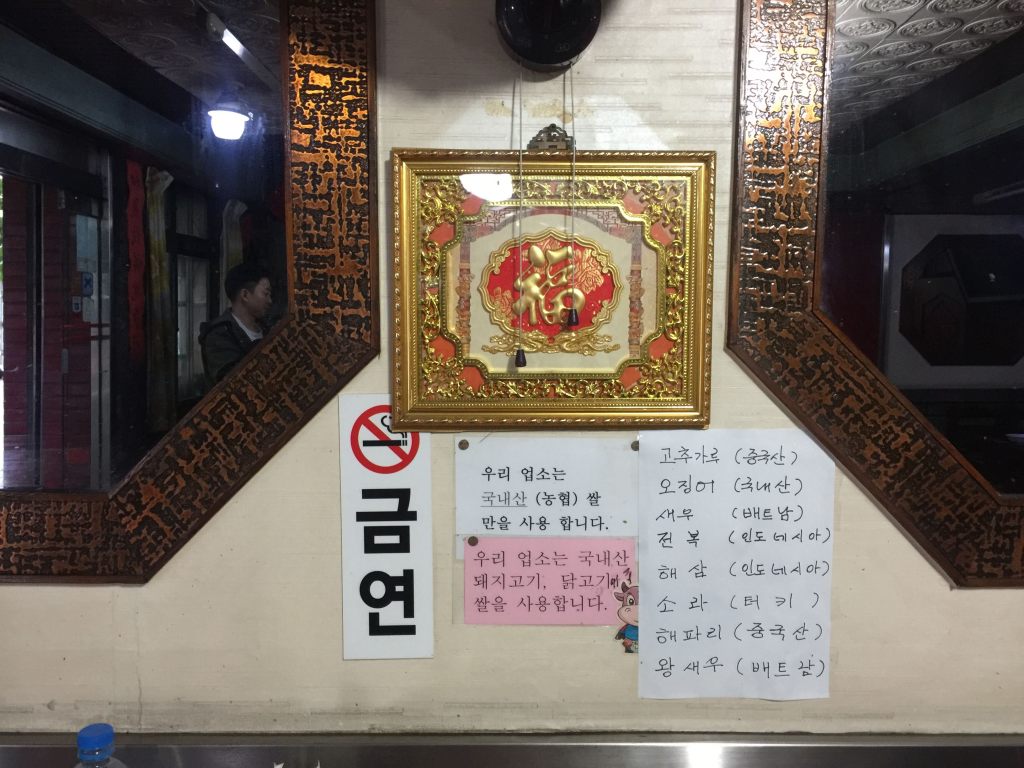 福
금연
우리 업소는
국내산 (농협) 쌀
만을 사용 합니다.
우리 업소는 국내산
돼지고기, 닭고기
쌀을 사용합니다.
고추가루 (중국산)
오징어 (국내산)
새우 (배트남)
전복 (인도네시아)
해삼 (인도네시아)
소라 (터키)
해파리 (중국산)
왕새우 (배트남)